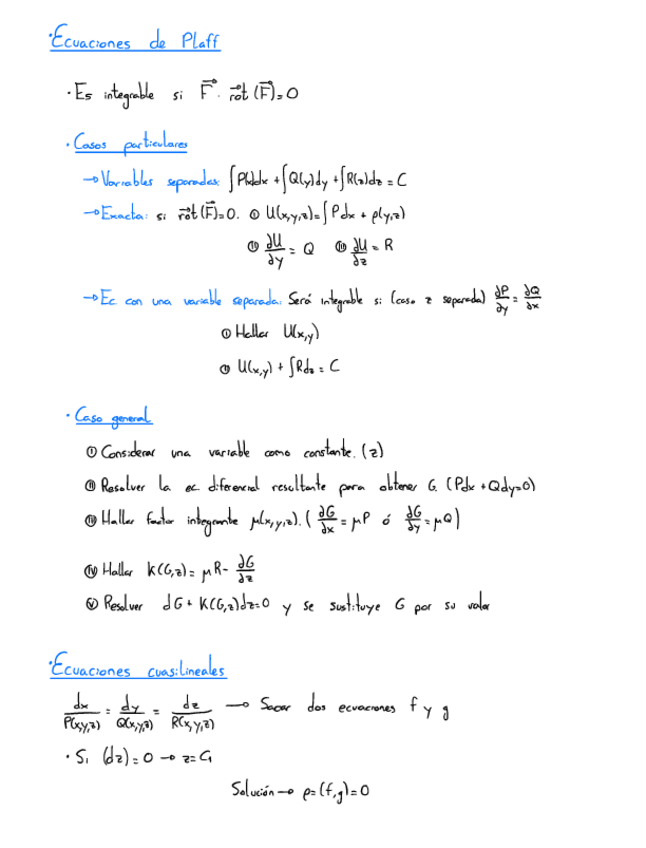 ·Ecuaciones de Plaff
·Es integrable si F⃗ · rot⃗ (F⃗) = 0
· Casos particulares
→ Variables separadas: ∫P(x)dx + ∫Q(y)dy + ∫R(z)dz = C
→ Exacta: si rot⃗(F⃗)=0. Ⓘ U(x,y,z)=∫Pdx + ρ(y,z)
Ⓘⓘ ∂U/∂y = Q Ⓘⓘⓘ ∂U/∂z = R
→ Ec con una variable separada: Será integrable si (caso z separada) ∂P/∂y = ∂Q/∂x
Ⓘ Hallar U(x,y)
Ⓘⓘ U(x,y) + ∫Rdz = C
· Caso general
Ⓘ Considerar una variable como constante. (z)
Ⓘⓘ Resolver la ec diferencial resultante para obtener G. (Pdx + Qdy=0)
Ⓘⓘⓘ Hallar factor integrante μ(x,y,z). (∂G/∂x = μP ó ∂G/∂y = μQ)
ⒾⓋ Hallar K(G,z) = μR - ∂G/∂z
Ⓥ Resolver dG + K(G,z)dz=0 y se sustituye G por su valor
·Ecuaciones cuasilineales
dx/P(x,y,z) = dy/Q(x,y,z) = dz/R(x,y,z) → Sacar dos ecuaciones f y g
· Si (dz) = 0 → z = C₁
Solución → ρ=(f,g)=0